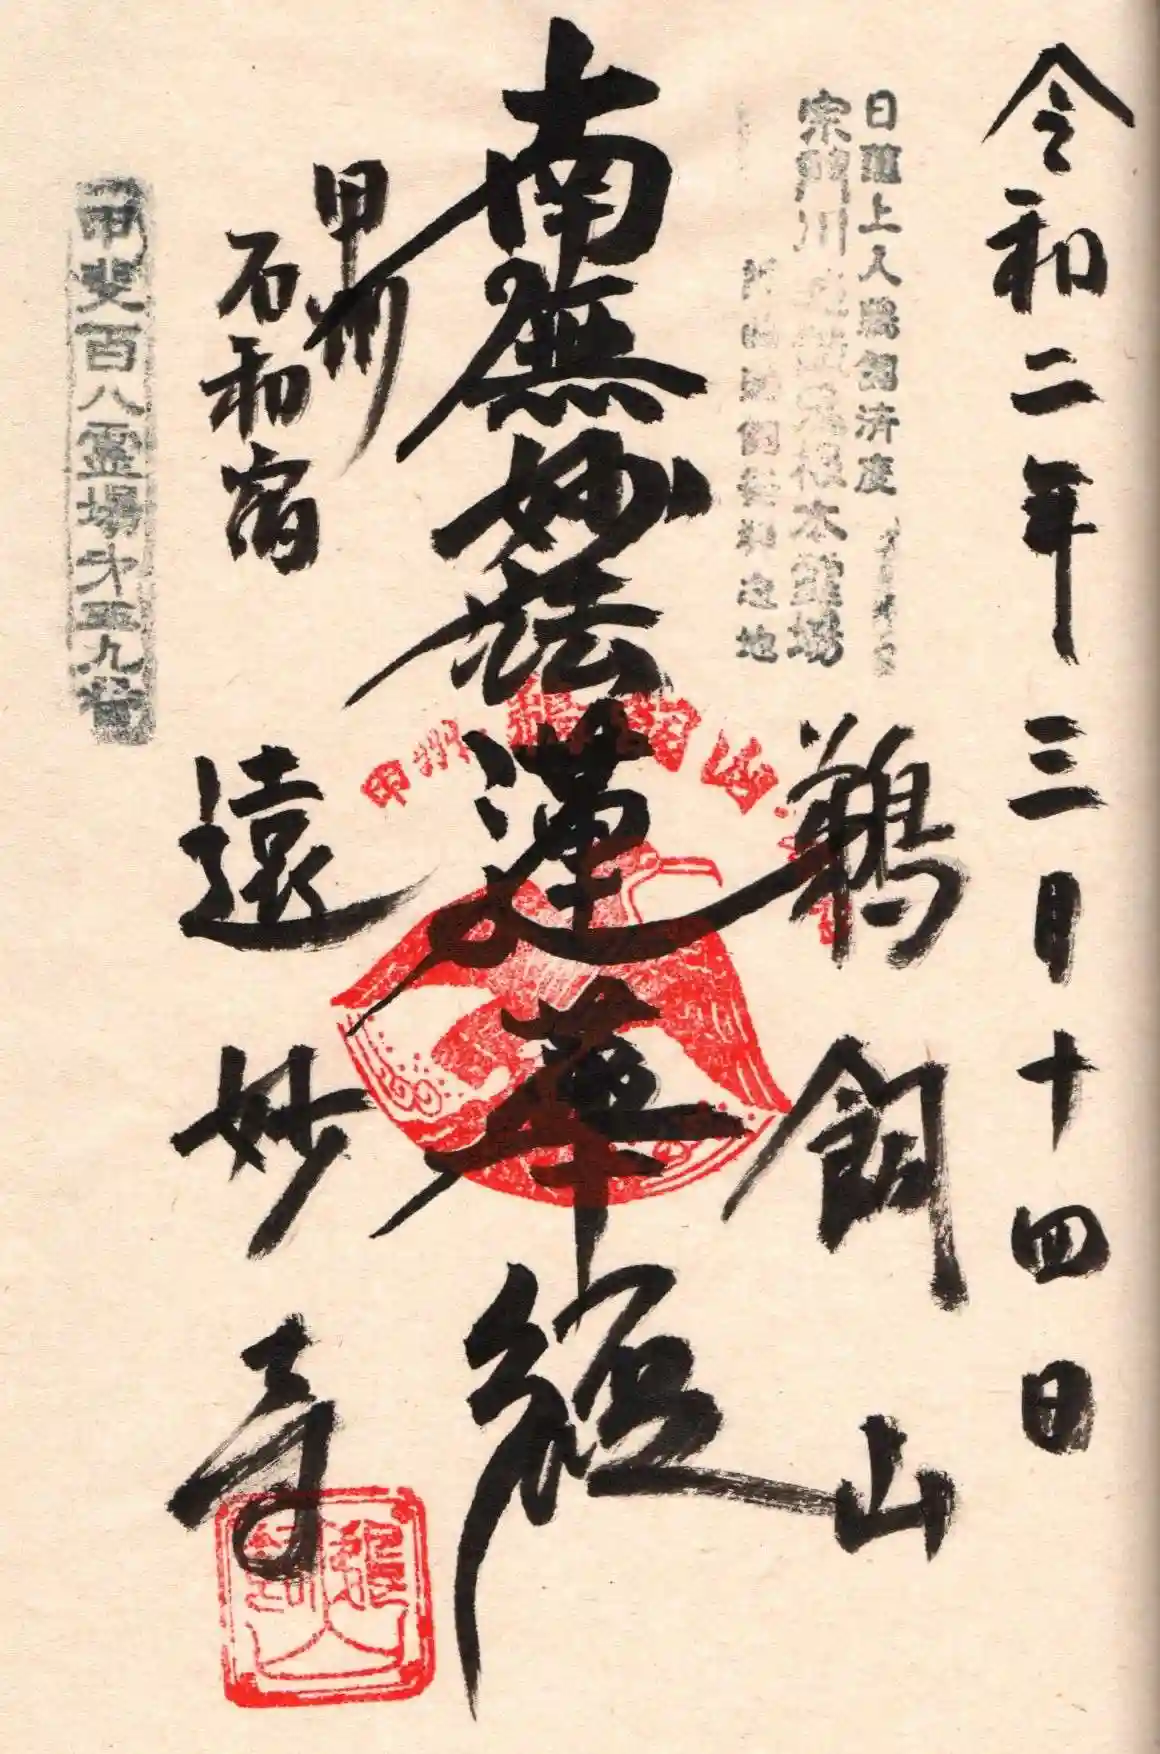 令和二年三月十四日
日蓮上人鵜飼済度
宗門川施餓鬼根本霊場
鵜飼山
南無妙法蓮華経
甲州
石和宿
遠妙寺
甲斐百八霊場才五九番
甲州鵜飼山